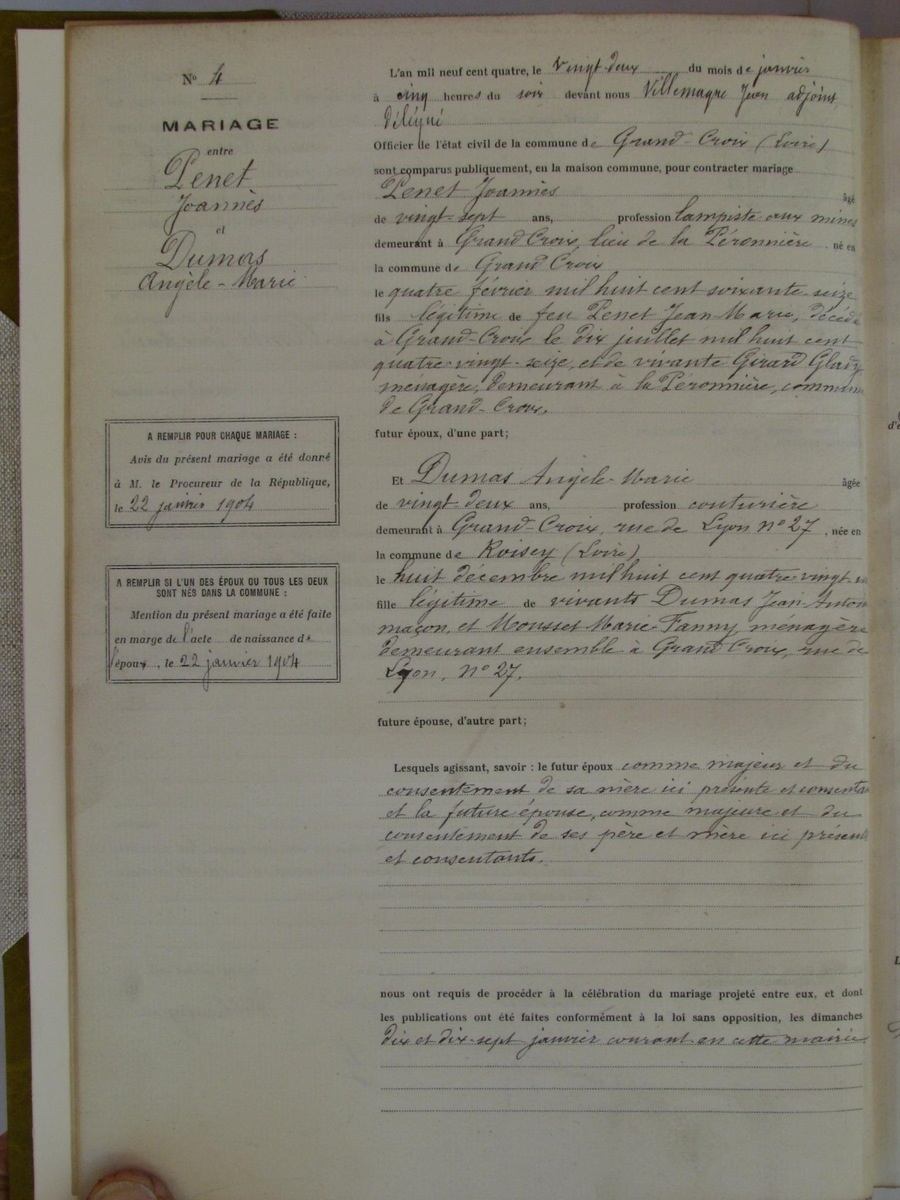 N° 4
MARIAGE
entre
Penet
Joannès
et
Dumas
Angèle-Marie
A REMPLIR POUR CHAQUE MARIAGE :
Avis du présent mariage a été donné
à M. le Procureur de la République,
le 22 janvier 1904
A REMPLIR SI L'UN DES ÉPOUX OU TOUS LES DEUX
SONT NÉS DANS LA COMMUNE :
Mention du présent mariage a été faite
en marge de l'acte de naissance de
l'époux, le 22 janvier 1904
L'an mil neuf cent quatre, le vingt-deux du mois de janvier
à cinq heures du soir devant nous Villemagne Jean adjoint
délégué
Officier de l'état civil de la commune de Grand-Croix (Loire)
sont comparus publiquement, en la maison commune, pour contracter mariage
Penet Joannès âgé
de vingt-sept ans, profession lampiste aux mines
demeurant à Grand Croix, lieu de la Péronnière né en
la commune de Grand Croix
le quatre février mil huit cent soixante-seize
fils légitime de feu Penet Jean-Marie, décédé
à Grand-Croix le dix juillet mil huit cent
quatre-vingt-seize, et de vivante Girard Glady
ménagère, demeurant à la Péronnière, commune
de Grand-Croix,
futur époux, d'une part;
Et Dumas Angèle-Marie âgée
de vingt-deux ans, profession couturière
demeurant à Grand-Croix, rue de Lyon n° 27, née en
la commune de Roisey (Loire)
le huit décembre mil huit cent quatre vingt
fille légitime de vivants Dumas Jean-Anton
maçon, et Mousset Marie-Fanny, ménagère
demeurant ensemble à Grand Croix, rue de
Lyon, N° 27,
future épouse, d'autre part;
Lesquels agissant, savoir : le futur époux comme majeur et du
consentement de sa mère ici présente et consenta
et la future épouse, comme majeure et du
consentement de ses père et mère ici présen
et consentants.
nous ont requis de procéder à la célébration du mariage projeté entre eux, et dont
les publications ont été faites conformément à la loi sans opposition, les dimanches
dix et dix-sept janvier courant en cette mairie